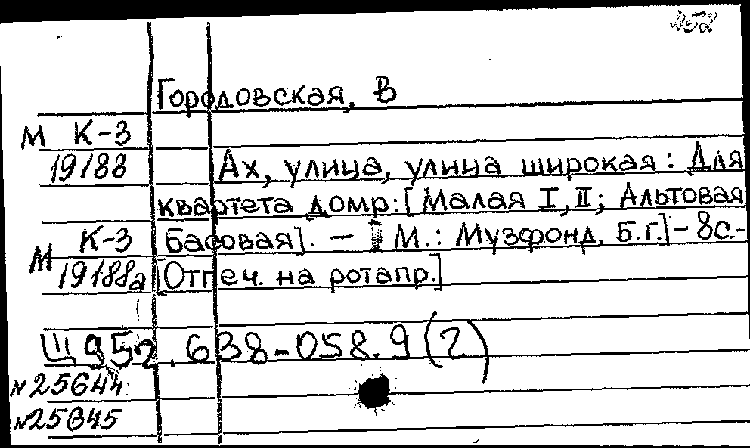 952
Городовская, В
М К-3
19188
Ах, улица, улица широкая: Для
квартета домр: [Малая I, II; Альтовая
М К-3
Басовая]. — [М.: Музфонд, Б.г.] - 8с.-
19188а
[Отпеч. на ротапр.]
Щ952.638-058.9(2)
№25644
№25645